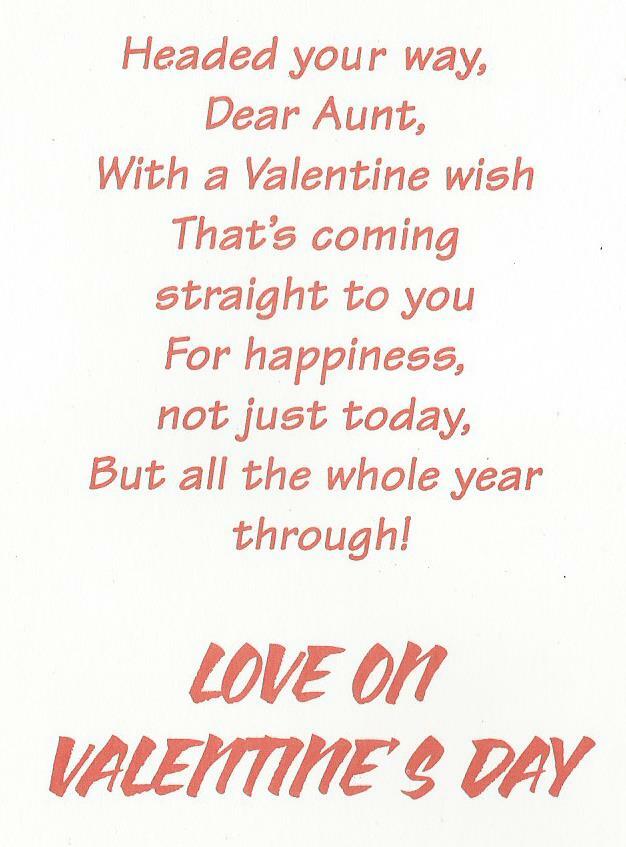 Headed your way,
Dear Aunt,
With a Valentine wish
That's coming
straight to you
For happiness,
not just today,
But all the whole year
through!
LOVE ON
VALENTINE'S DAY